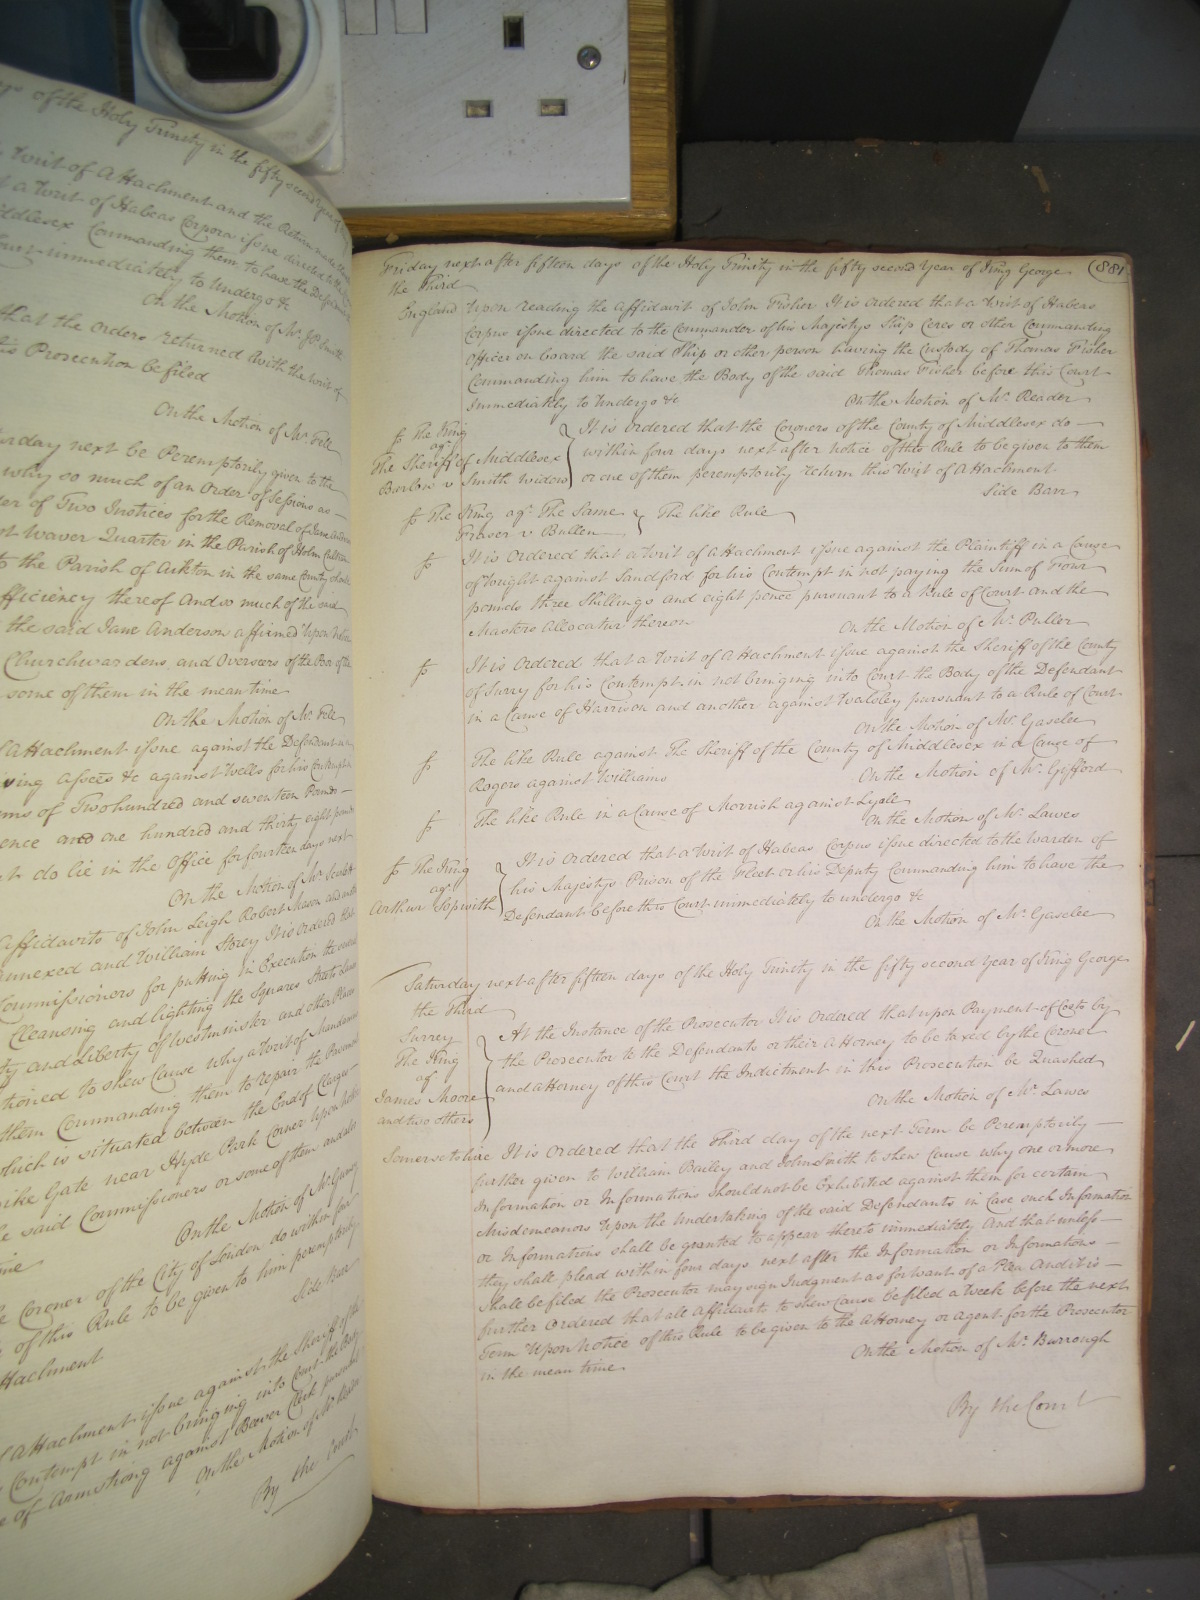 ys of the Holy Trinity in the fifty second Year of
Writ of Attachment and the Return made
a Writ of Habeas Corpora issue directed to the
ddlesex Commanding them to have the Defendant
Court immediately to Undergo &c
On the Motion of Mr. J P Smith
that the orders returned with the writ of
is Prosecution be filed
On the Motion of Mr. Pell
urday next be Peremptorily given to the
why so much of an Order of Sessions as
er of Two Justices for the Removal of Jane Anderson
Waver Quarter in the Parish of Holm Cultram
to the Parish of Aikton in the same County
fficiency thereof And so much of the said
the said Jane Anderson affirmed Upon Notice
Churchwardens and Overseers of the Poor of the
some of them in the mean time
On the Motion of Mr. Pell
Attachment issue against the Defendant
ving assets &c against Wells for his Contempt
ms of Two hundred and seventeen Pounds
ence and one hundred and thirty eight pounds
do lie in the Office for fourteen days next
On the Motion of Mr.
Affidavits of John Leigh Robert Mason
annexed and William Storey It is ordered that
Commissioners for putting in Execution the
Cleansing and lighting the Squares Streets Lanes
ty and Liberty of Westminster and other Places
tioned to shew Cause why a Writ of Mandamus
them Commanding them to repair the Pavement
which is situated between the End of
pike Gate near Hyde Park Corner Upon Notice
said Commissioners or some of them
On the Motion of Mr. Gurney
Coroner of the City of London do within four
of this Rule to be given to him peremptorily
ttachment
Side Bar
Attachment issue against the Sheriff of the
Contempt in not bringing into Court the Body
of Armstrong against Beaver Clerk pursuant
On the Motion of Mr.
By the Court
Friday next after fifteen days of the Holy Trinity in the fifty second Year of King George 881
the Third
England Upon reading the Affidavit of John Fisher It is ordered that a Writ of Habeas
Corpus issue directed to the Commander of his Majestys Ship Ceres or other Commanding
Officer on board the said Ship or other person having the Custody of Thomas Fisher
Commanding him to have the Body of the said Thomas Fisher before this Court
Immediately to Undergo &c On the Motion of Mr. Reader
The King
agt.
The Sheriff of Middlesex
Barlow v Smith Widow
It is ordered that the Coroners of the County of Middlesex do
within four days next after notice of this Rule to be given to them
or one of them peremptorily return this Writ of Attachment
Side Barr
The King agt. The Same The like Rule
Fraser v Bullen
It is Ordered that a Writ of Attachment issue against the Plaintiff in a Cause
of Tought against Sandford for his Contempt in not paying the Sum of Four
pounds three Shillings and eight pence pursuant to a Rule of Court and the
Masters Allocatur thereon On the Motion of Mr. Puller
It is Ordered that a Writ of Attachment issue against the Sheriff of the County
of Surry for his Contempt in not bringing into Court the Body of the Defendant
in a Cause of Harrison and another against Walsley pursuant to a Rule of Court
On the Motion of Mr. Gaselee
The like Rule against The Sheriff of the County of Middlesex in a Cause of
Rogers against Williams On the Motion of Mr. Gifford
The like Rule in a Cause of Morrish against Lyde
On the Motion of Mr. Lawes
The King
agt.
Arthur Sopwith
It is Ordered that a Writ of Habeas Corpus issue directed to the Warden of
his Majestys Prison of the Fleet or his Deputy Commanding him to have the
Defendant before this Court immediately to undergo &c
On the Motion of Mr. Gaselee
Saturday next after fifteen days of the Holy Trinity in the fifty second Year of King George
the Third
Surrey
The King
agt
James Moore
and two others
At the Instance of the Prosecutor It is Ordered that upon Payment of Costs by
the Prosecutor to the Defendants or their Attorney to be taxed by the Coroner
and Attorney of this Court the Indictment in this Prosecution be Quashed
On the Motion of Mr. Lawes
Somersetshire It is Ordered that the Third day of the next Term be Peremptorily
further given to William Bailey and John Smith to shew Cause why one or more
Information or Informations should not be Exhibited against them for certain
Misdemeanors Upon the Undertaking of the said Defendants in Case such Information
or Informations shall be granted to appear thereto immediately And that unless
they shall plead within four days next after the Information or Informations
shall be filed the Prosecutor may sign Judgment as for want of a Plea And it is
further Ordered that all Affidavits to shew Cause be filed a week before the next
Term Upon Notice of this Rule to be given to the Attorney or Agent for the Prosecutor
in the mean time. On the Motion of Mr. Burrough
By the Court